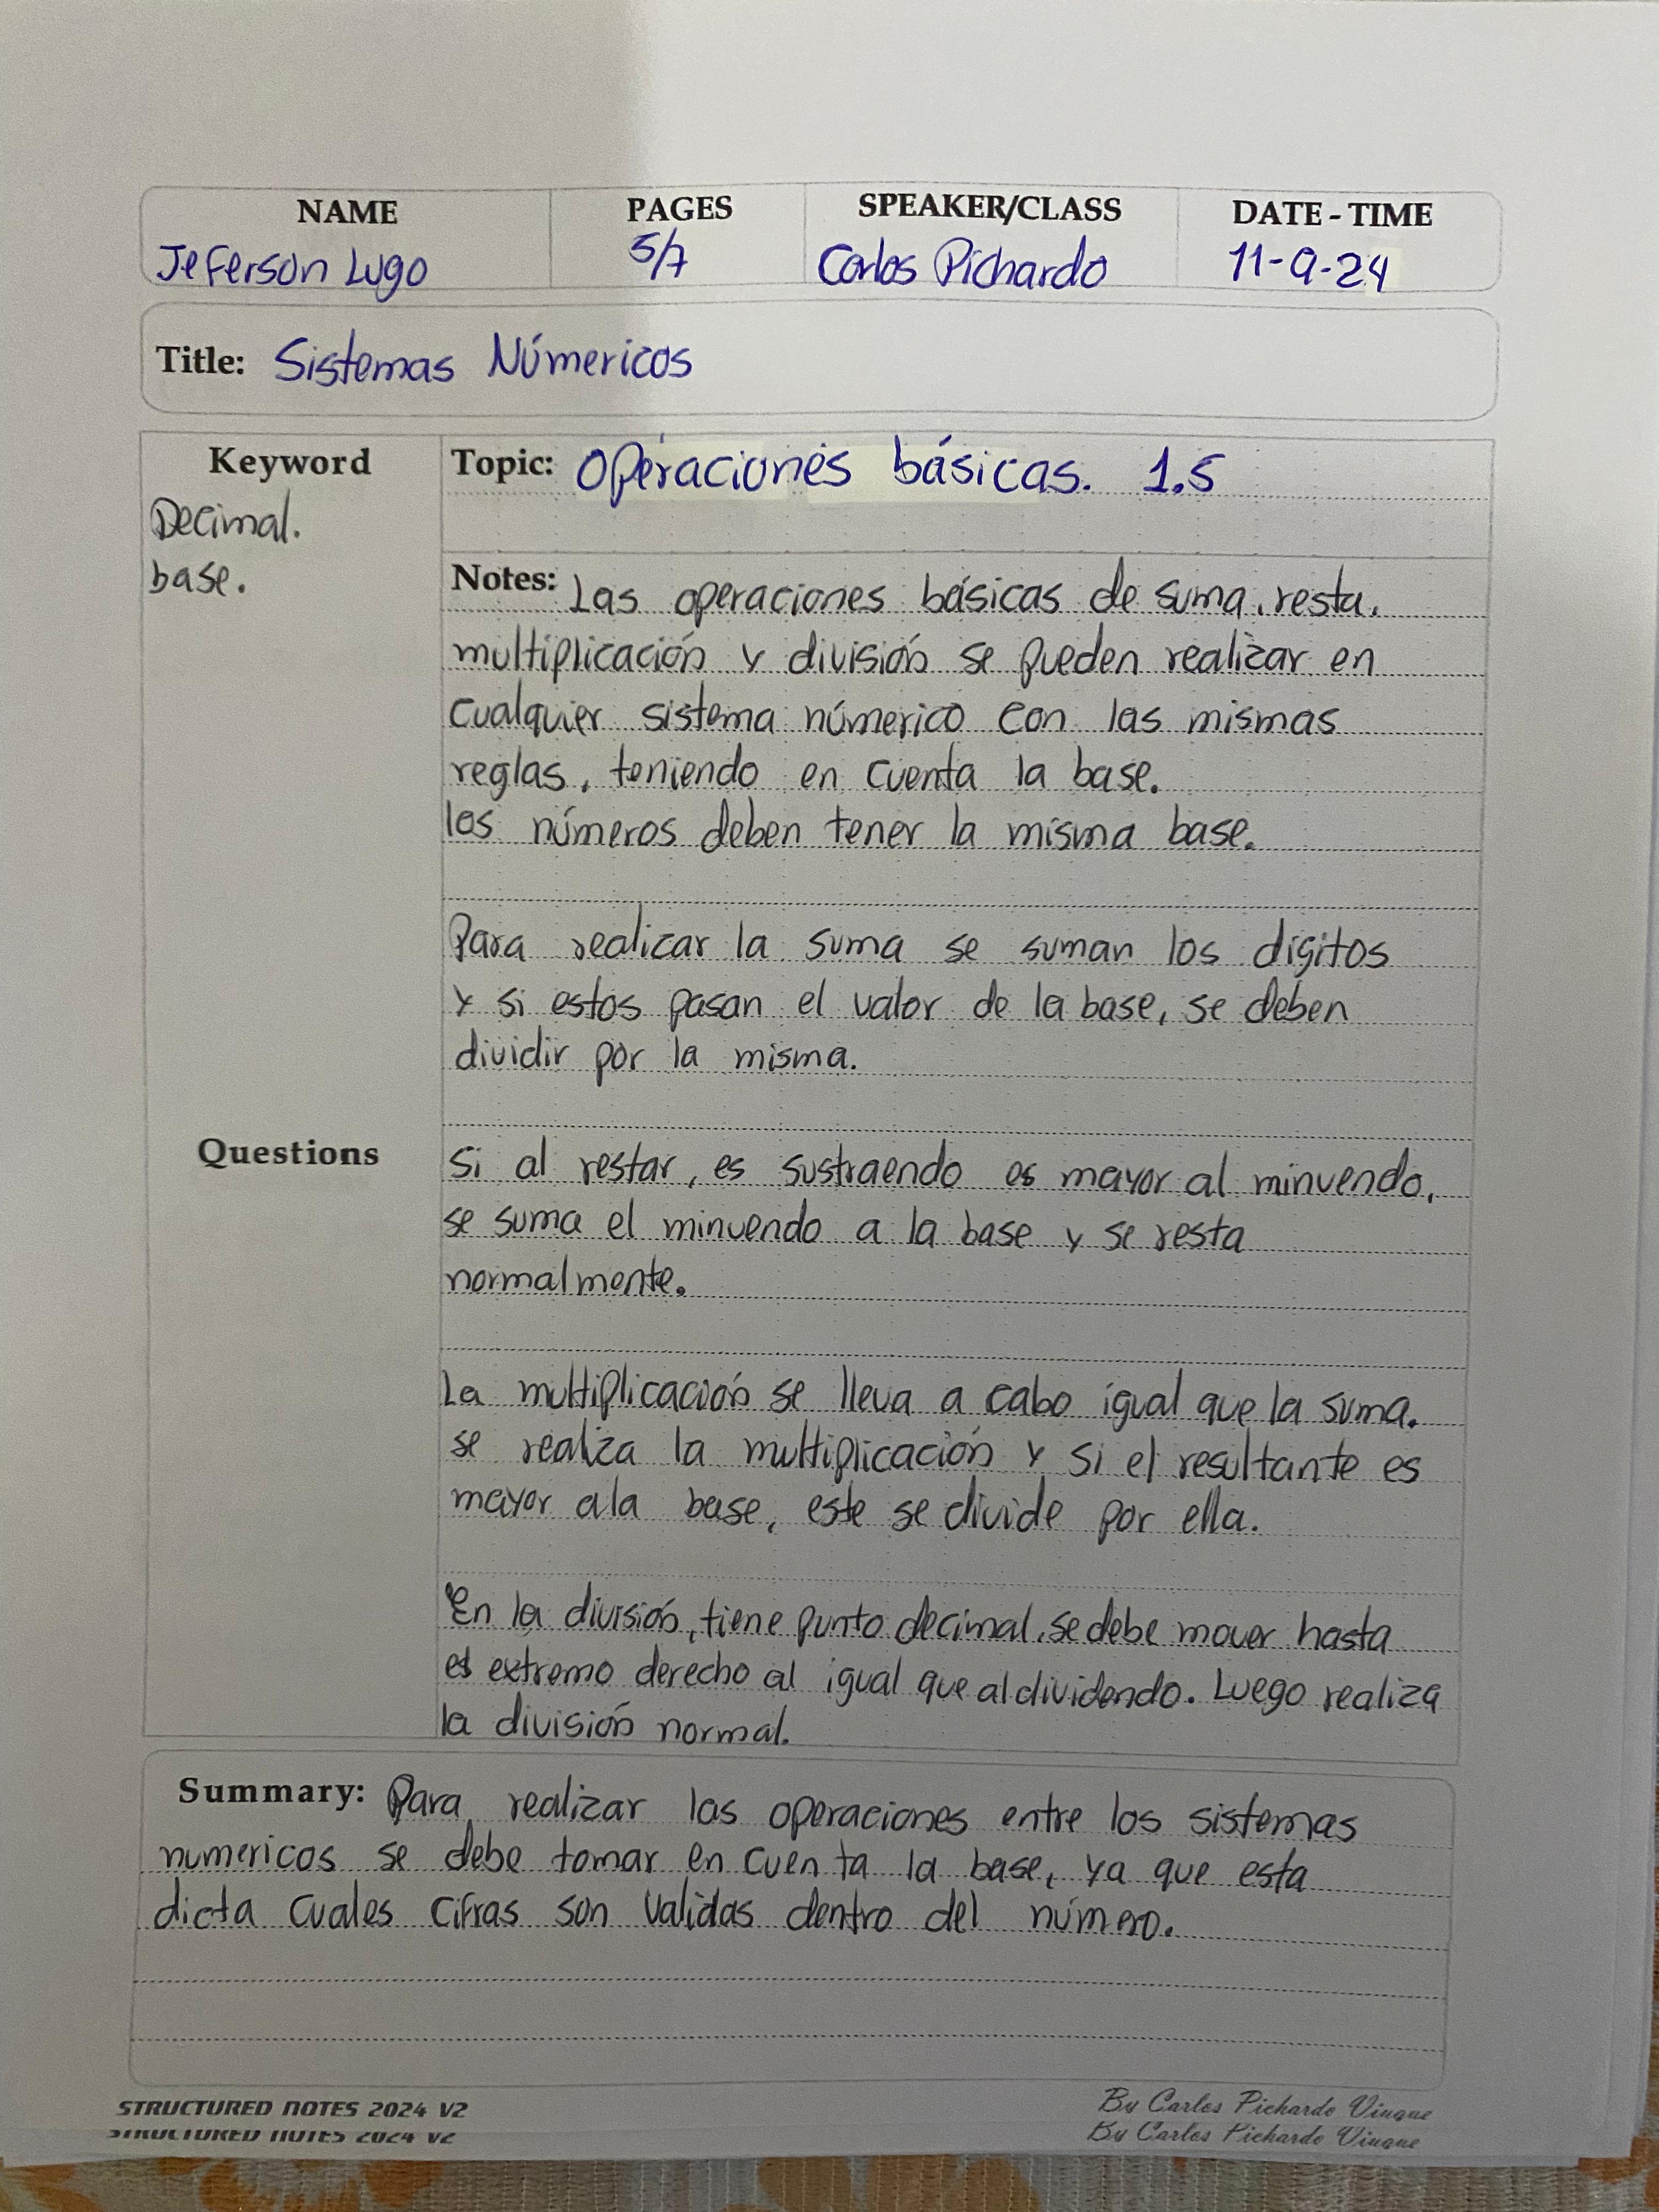 NAME PAGES SPEAKER/CLASS DATE - TIME
Jeferson Lugo 5/7 Carlos Pichardo 11-9-24
Title: Sistemas Númericos
Keyword
Decimal.
base.
Topic: Operaciones básicas. 1.5
Notes: Las operaciones básicas de suma, resta,
multiplicación y división se pueden realizar en
cualquier sistema númerico con las mismas
reglas, teniendo en cuenta la base.
los números deben tener la misma base.
Para realizar la suma se suman los digitos
y si estos pasan el valor de la base, se deben
dividir por la misma.
Questions
Si al restar, es sustraendo es mayor al minuendo,
se suma el minuendo a la base y se resta
normalmente.
La multiplicación se lleva a cabo igual que la suma.
se realiza la multiplicación y si el resultante es
mayor a la base, este se divide por ella.
En la división, tiene punto decimal, se debe mover hasta
el extremo derecho al igual que al dividendo. Luego realiza
la división normal.
Summary: Para realizar las operaciones entre los sistemas
numericos se debe tomar en cuenta la base, ya que esta
dicta cuales cifras son validas dentro del número.
STRUCTURED NOTES 2024 V2 By Carlos Pichardo Viuque
STRUCTURED NOTES 2024 V2 By Carlos Pichardo Viuque